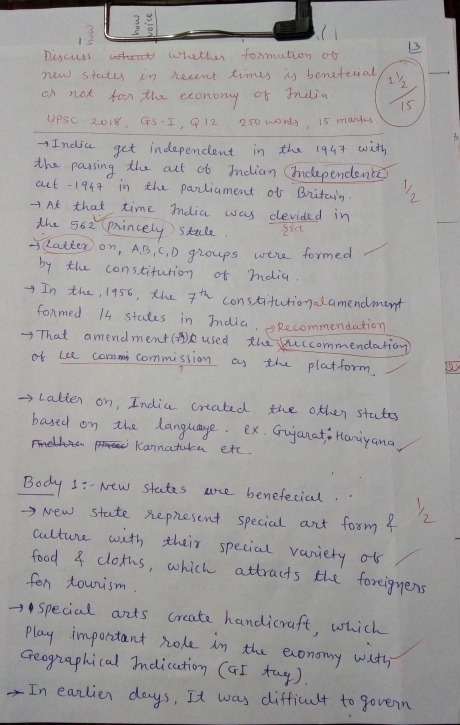 how
how
voice
13
Discuss whether formation of
new states in recent times is beneficial
or not for the economy of India.
2 1/2
15
UPSC-2018, GS-I, Q12. 250 words, 15 marks.
→ India get independent in the 1947 with
the passing the act of Indian Independente
act -1947 in the parliament of Britain.
1/2
→ At that time India was devided in
the 562 princely state.
→ Latter on, A,B,C,D groups were formed
by the constitution of India.
→ In the, 1956, the 7th constitutional amendment
formed 14 states in India.
Recommendation
→ That amendment used the reccommendation
of Lee commission as the platform.
?
→ Latter on, India created the other states
based on the language. ex. Gujarat, Hariyana,
Karnataka etc.
Body 1:- New states are benefecial..
1/2
→ New state represent special art form &
culture with their special variety of
food & cloths, which attracts the foreigners
for tourism.
→ Special arts create handicraft, which
play important role in the economy with
Geographical Indication (GI tag).
→ In earlier days, It was difficult to govern